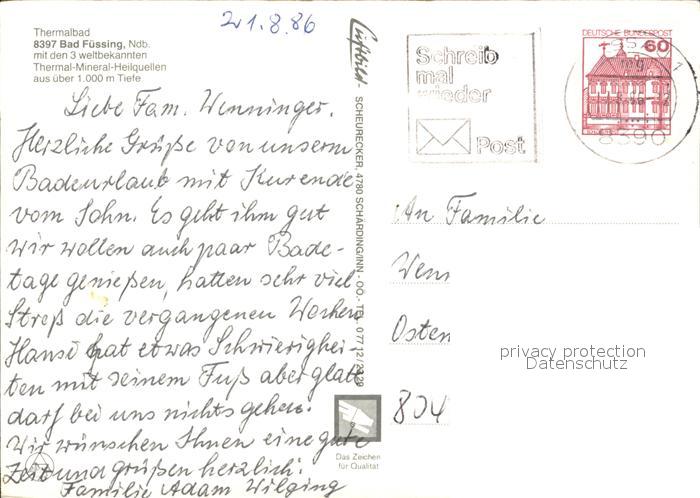 21.8.86
Thermalbad
8397 Bad Füssing, Ndb.
mit den 3 weltbekannten
Thermal-Mineral-Heilquellen
aus über 1.000 m Tiefe
Liebe Fam. Wenninger.
Herzliche Grüße von unserm
Badeurlaub mit Kurende
vom Sohn. Es geht ihm gut
wir wollen auch paar Bade-
tage genießen, hatten sehr viel
Streß die vergangenen Wochen
Hansi hat etwas Schwierighei-
ten mit seinem Fuß aber glatt
darf bei uns nichts gehen.
Wir wünschen Ihnen eine gute
Zeit und grüßen herzlich:
Familie Adam Wilging
Luftbild-
SCHEURECKER, 4780 SCHÄRDING/INN - OÖ. - TEL. 0 77 12 /
Schreib
mal
wieder
Post
DEUTSCHE BUNDESPOST
60
8390
An Familie
Wen
Osten
804
privacy protection
Datenschutz
Das Zeichen
für Qualität